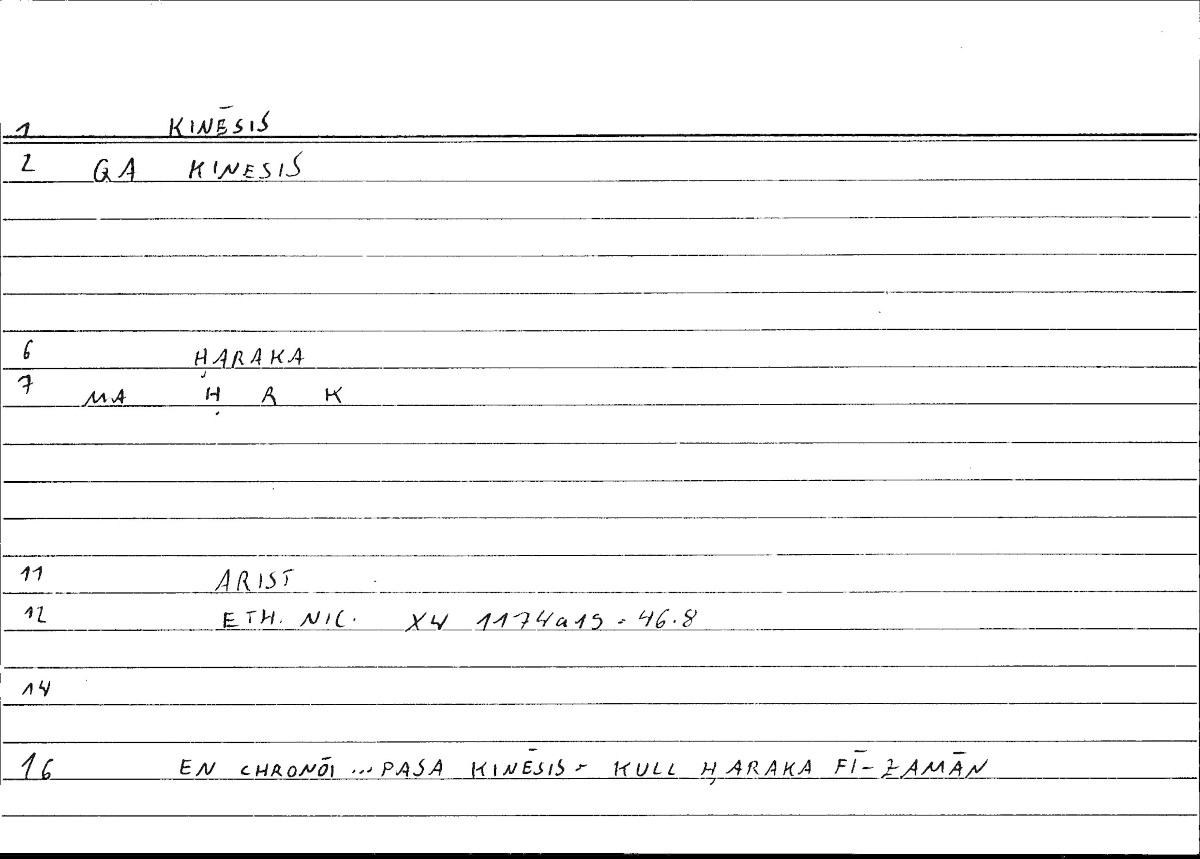 1 KINĒSIS
2 QA KINESIS
6 ḤARAKA
7 MA Ḥ R K
11 ARIST
12 ETH. NIC. X4 1174a19 = 46.8
14
16 EN CHRONŌI ... PASA KINĒSIS = KULL ḤARAKA FĪ-ZAMĀN